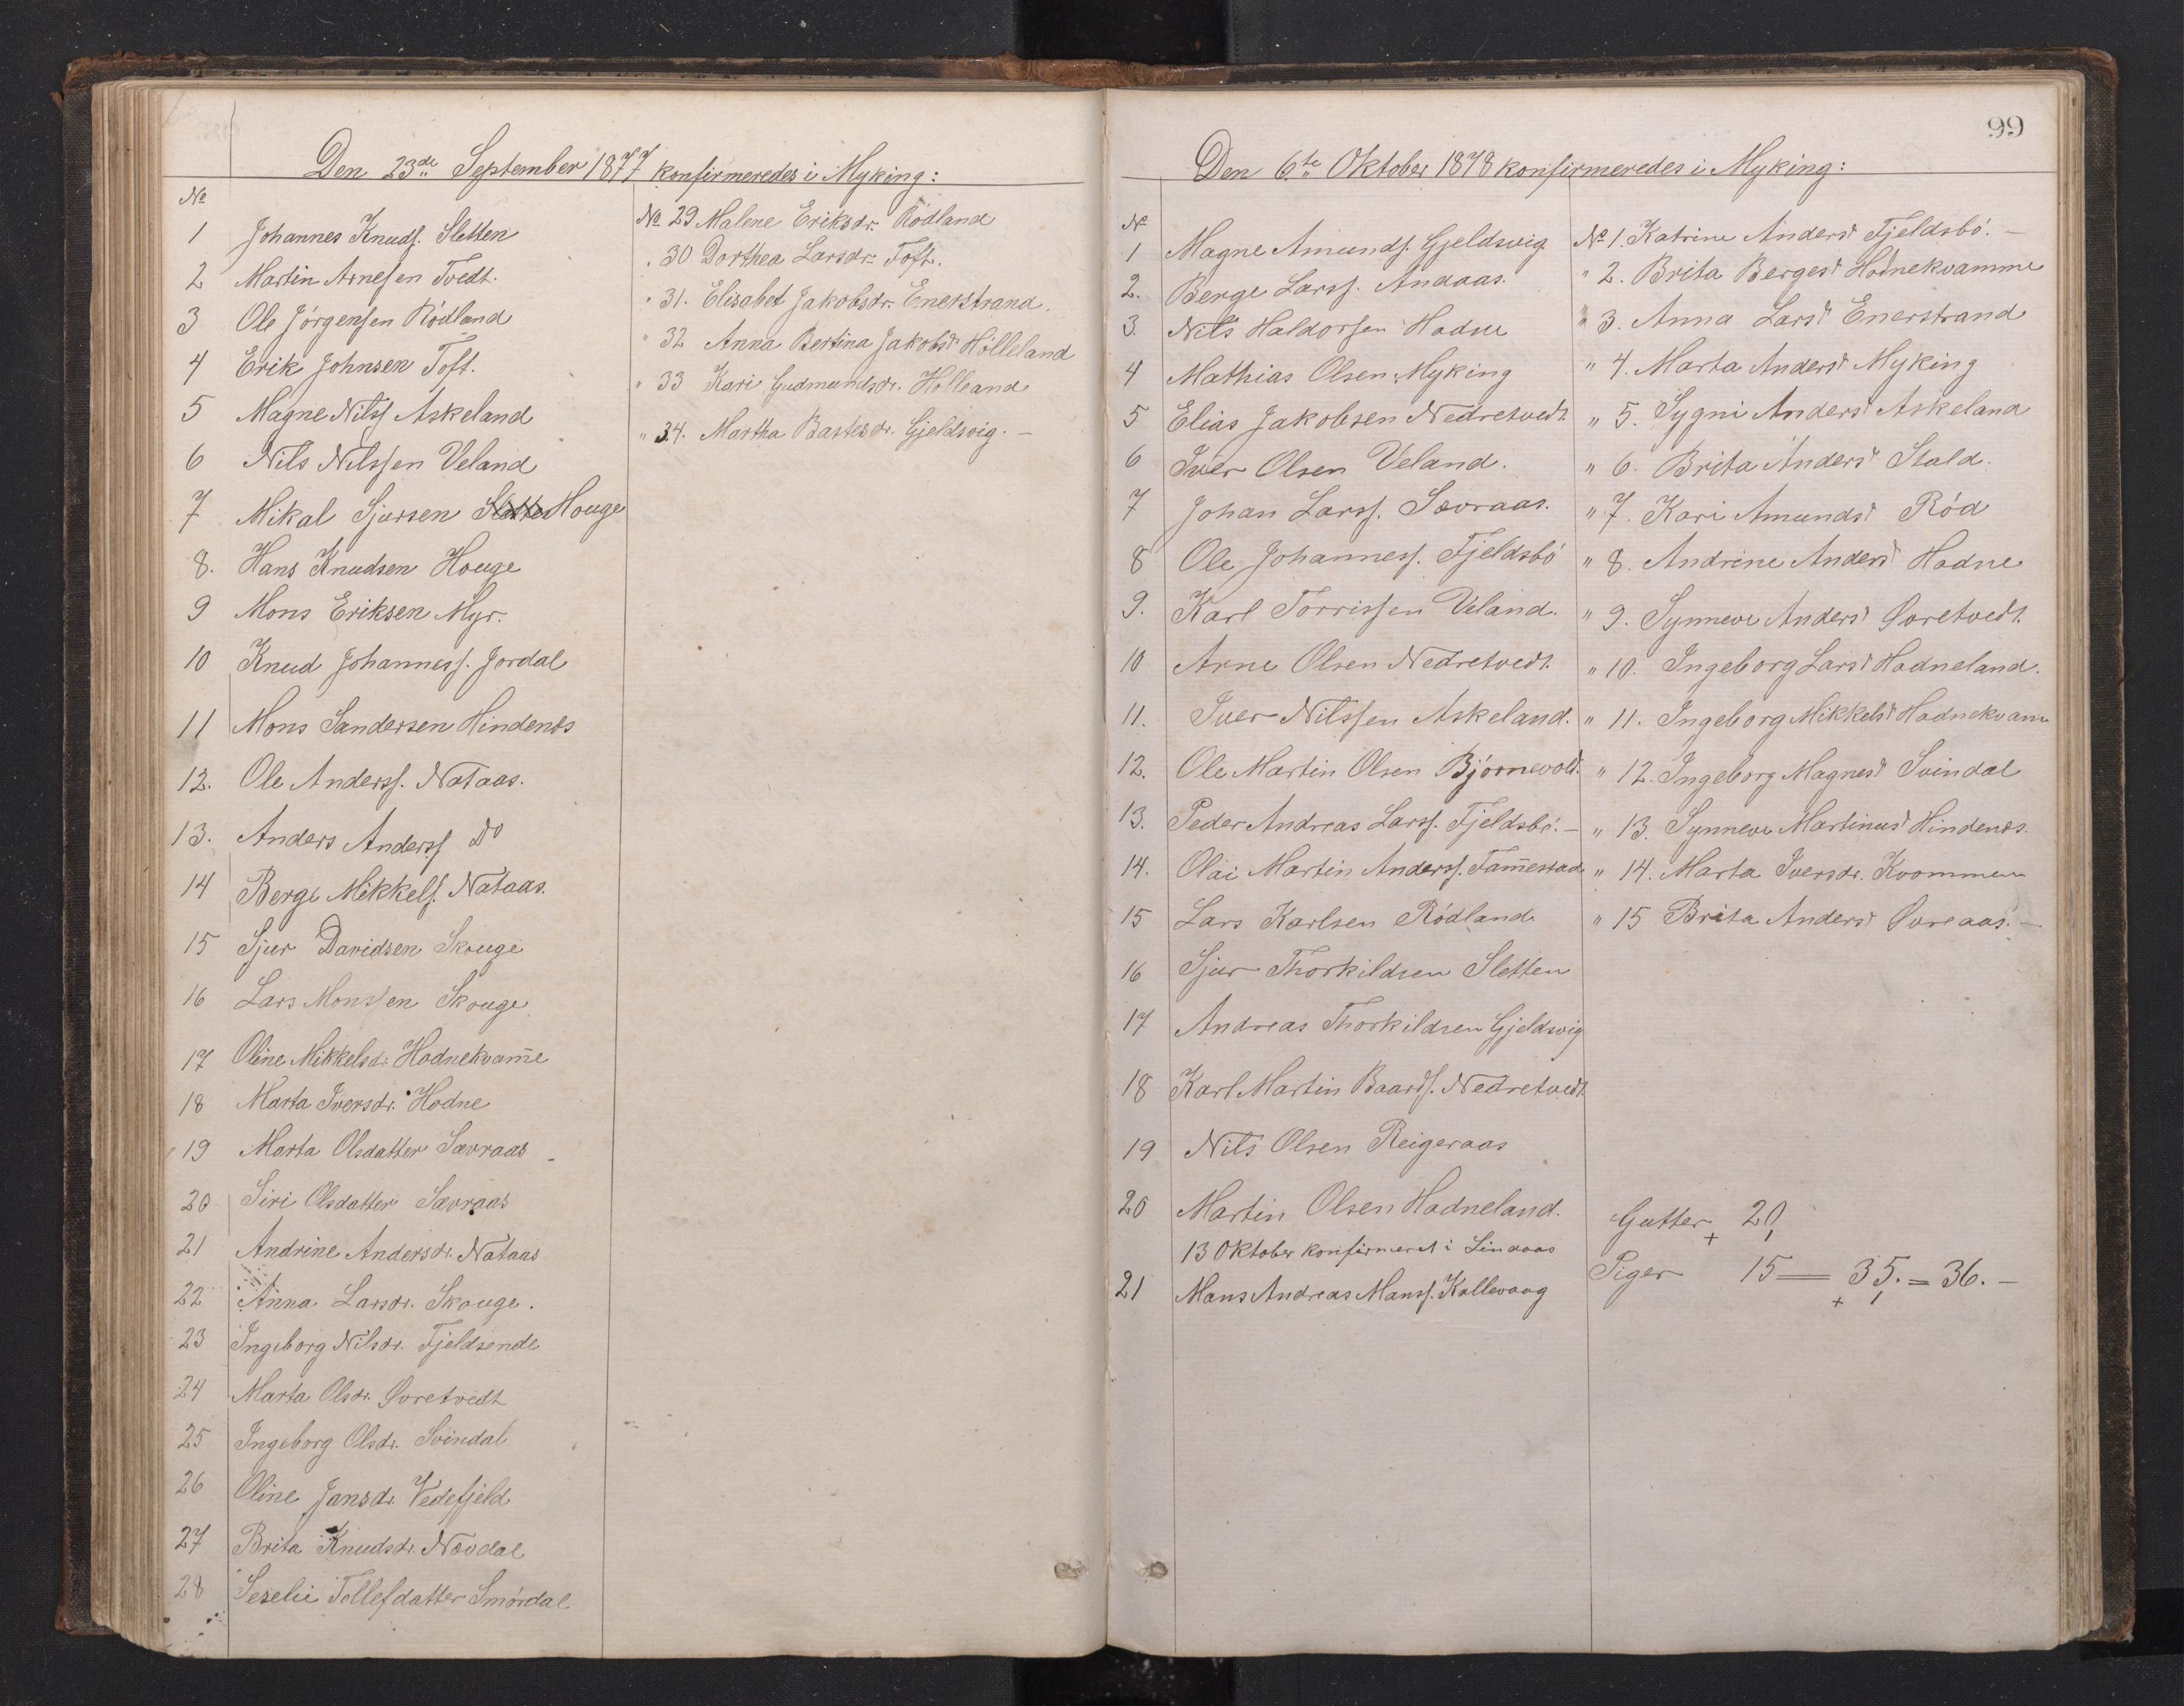 Den 23de September 1877 konfirmeredes i Myking:
No
1 Johannes Knuds. Sletten
2 Martin Arnesen Tvedt.
3 Ole Jörgensen Rödland
4 Erik Johnsen Toft.
5 Magne Nilss Askeland
6 Nils Nilssen Veland
7 Mikal Sjursen Houge
8. Hans Knudsen Houge
9 Mons Eriksen Myr.
10 Knud Johanness. Jordal
11 Mons Sandersen Hindenæs
12. Ole Anderss. Nataas.
13. Anders Anderss Do
14 Berge Mikkels. Nataas.
15 Sjur Davidsen Skouge
16 Lars Monssen Skouge
17 Oline Mikkelsdr. Hodnekvam̄e
18 Marta Iversdr. Hodne
19 Marta Olsdatter Sævraas
20 Siri Olsdatter Sævraas
21 Andrine Andersdr. Nataas
22 Anna Larsdr. Skouge.
23 Ingeborg Nilsdr. Fjeldsende
24 Marta Olsdr. Øvretvedt
25 Ingeborg Olsdr. Svindal
26 Oline Jansdr. Vedefjeld
27 Brita Knudsdr. Nævdal
28 Seselie Tollefdatter Smördal
No 29 Malene Eriksdr. Rödland
" 30 Dorthea Larsdr. Toft.
" 31. Elisabet Jakobsdr. Enerstrand.
" 32 Anna Bertina Jakobsd. Hölleland
" 33 Kari Gudmundsdr. Holleand
" 34. Martha Bastesdr. Gjeldsvig. –
99
Den 6te Oktober 1878 konfirmeredes i Myking:
No
1 Magne Amunds. Gjeldsvig.
2. Berge Larss. Andaas.
3. Nils Haldorsen Hodne
4 Mathias Olsen Myking
5 Elias Jakobsen Nedretvedt.
6 Iver Olsen Veland.
7 Johan Larss. Sævraas.
8 Ole Johanness. Fjeldsbö
9. Karl Torrissen Veland.
10 Arne Olsen Nedretvedt.
11. Iver Nilssen Askeland.
12. Ole Martin Olsen Björnevold.
13. Peder Andreas Larss. Fjeldsbö. –
14. Olai Martin Anderss. Fam̄estad
15 Lars Karlsen Rödland
16 Sjur Thorkildsen Sletten
17 Andreas Thorkildsen Gjeldsvig
18 Karl Martin Baards. Nedretvedt.
19 Nils Olsen Reigeraas
20 Martin Olsen Hodneland.
13 Oktober konfirmeret i Lindaas
21 Mons Andreas Monss. Kollevaag
No 1. Katrine Andersd Fjeldsbö. –
" 2. Brita Bergesd Hodnekvamme
" 3. Anna Larsd Enerstrand
" 4. Marta Andersd Myking
" 5. Sygni Andersd Askeland
" 6. Brita Andersd Stald.
" 7. Kari Amundsd Röd
" 8. Andrine Andersd Hodne
" 9. Synneve Andersd Øvretvedt.
" 10. Ingeborg Larsd Hodneland.
" 11. Ingeborg Mikkelsd Hodnekvam
" 12. Ingeborg Magnesd Svindal
" 13. Synneve Martinusd Hindenæs.
" 14. Marta Iversdr. Kvammen
" 15 Brita Andersd Øvreaas. –
Gutter 20,
Piger 15 = 35. = 36. –